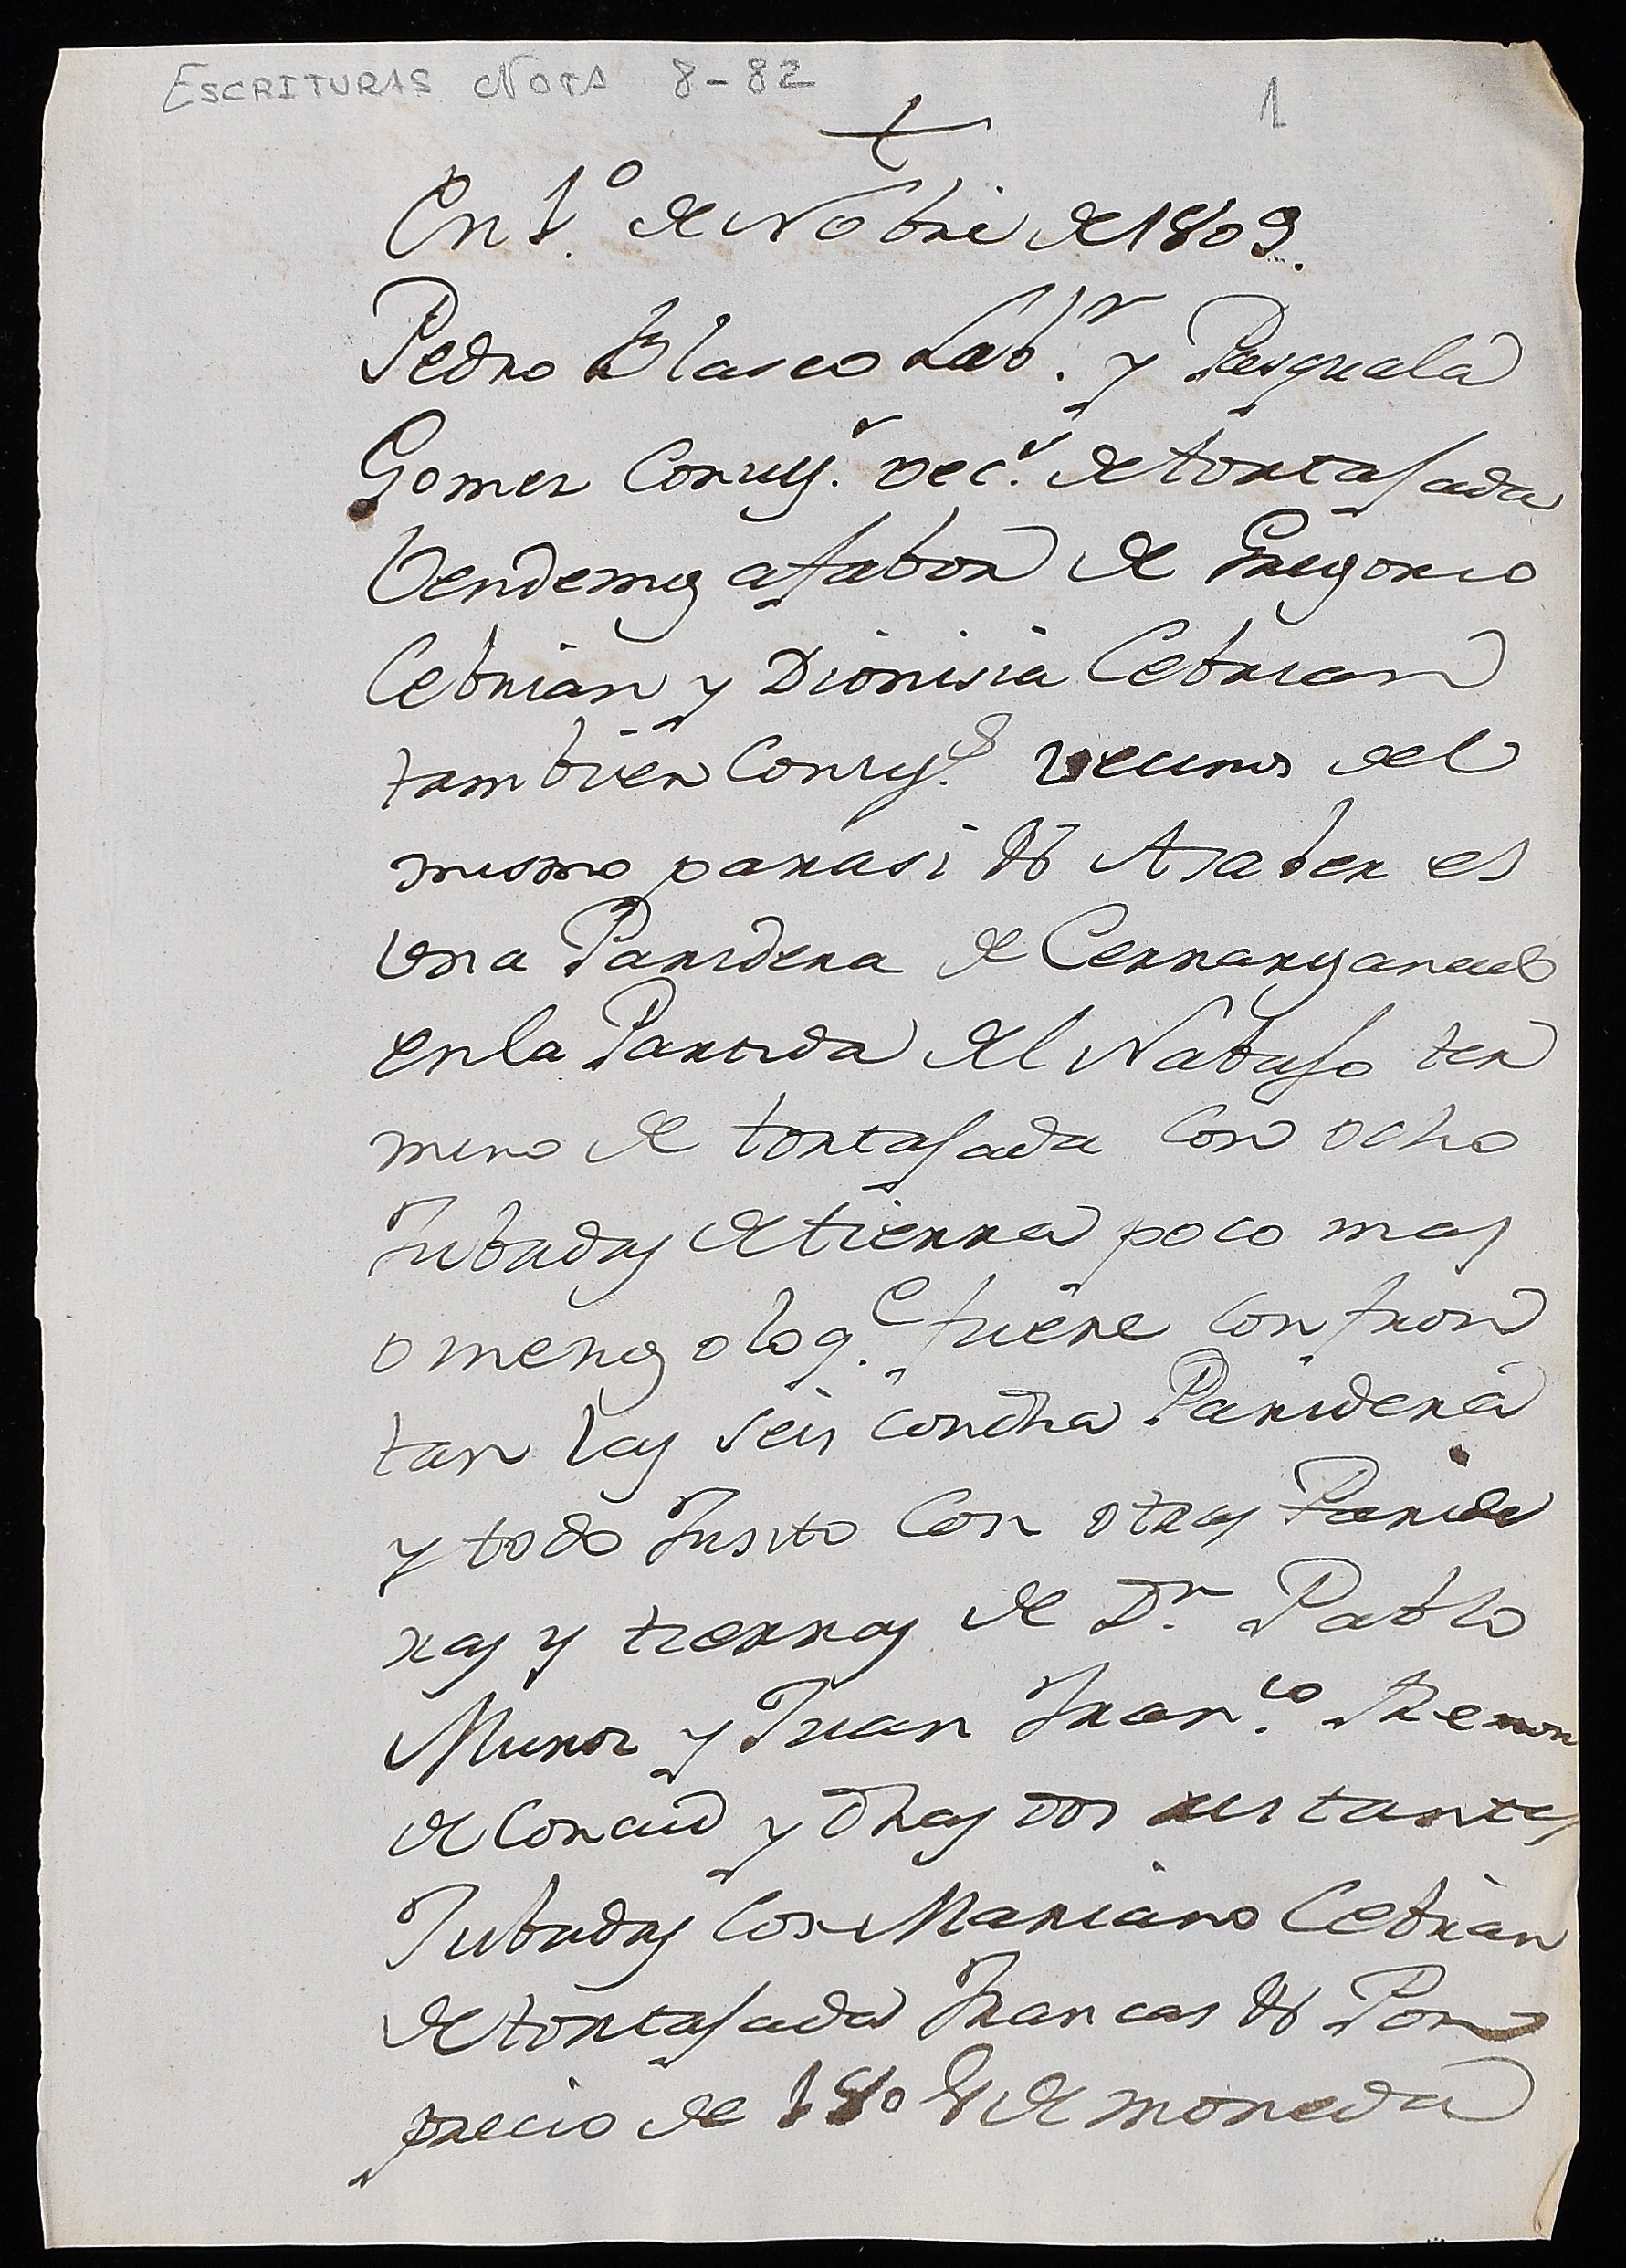 ESCRITURAS NOTA 8-82
1
En 1.º de Nobre de 1809.
Pedro Blasco Lab.r y Pasquala
Gomez Conyug.s vec.s de tortajada
Vendemos afabor de Gregorio
Cebrian y Dionisia Cebrian
tambien Conyug.s vecinos del
mismo para si &.ª Asaber es
Una Paridera de Cerrar ganado
en la Partida del Nabajo ter
mino de tortajada Con ocho
Jubadas de tierra poco mas
omenos olo q.e fuere Confron
tan las seis Con dha Paridera
y todo Junto Con otras Paride
ras y tierras de D.n Pablo
Munoz y Juan Fran.co Remon
de Concud y dhas dos restantes
Jubadas Con Mariano Cebrian
de tortajada Francas &.ª Por
precio de 180 de moneda